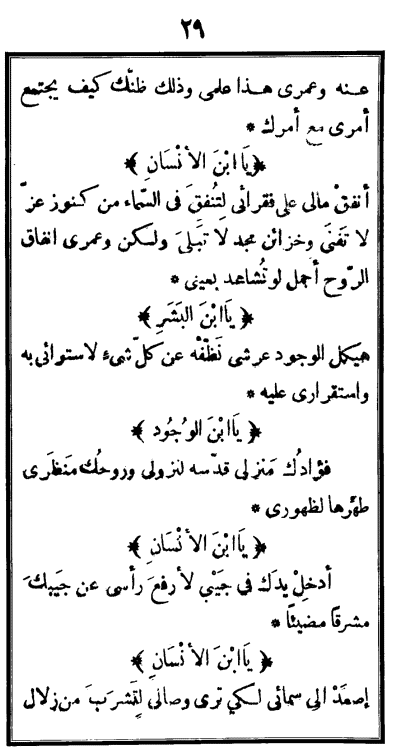 ٢٩
عـنه وعمرى هـذا علمى وذلك ظنّك كيف يجتمع
أمرى مع أمرك *
﴿ يَا ابْنَ الأنْسَانِ ﴾
أنفقْ مالى على فقرائى لِتُنفِقَ فى السّماء من كنوز عزّ
لا تَفنَى وخزائن مجد لا تَبلَى ولكن وعمرى انفاق
الرّوح أجمل لو تُشاهد بعينى *
﴿ يَا ابْنَ البَشَرِ ﴾
هيكل الوجود عرشى نَظّفْه عن كلّ شىءٍ لاستوائى به
واستقرارى عليه *
﴿ يَا ابْنَ الوُجُود ﴾
فؤادُك مَنزلى قدّسه لنزولى وروحُك مَنظَرى
طهّرها لظهورى *
﴿ يَا ابْنَ الأنْسَانِ ﴾
أدخِلْ يدَك فى جَيْبي لأرفعَ رأسى عن جَيبكَ
مشرقًا مضيئًا *
﴿ يَا ابْنَ الأنْسَانِ ﴾
إصعَدْ الى سمائى لكي ترى وصالى لِتَشرَبَ من زلال